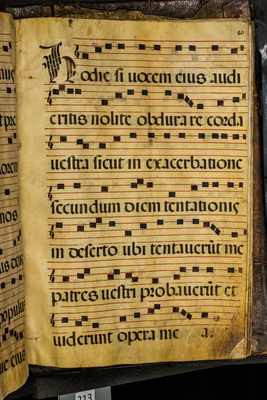 60
Hodie si uocem eius audi
eritis nolite obdura re corda
uestra sicut in exacerbatione
secundum diem tentationis
in deserto ubi tentauerũt me
patres uestri probauerũt et
uiderunt opera me a.
213